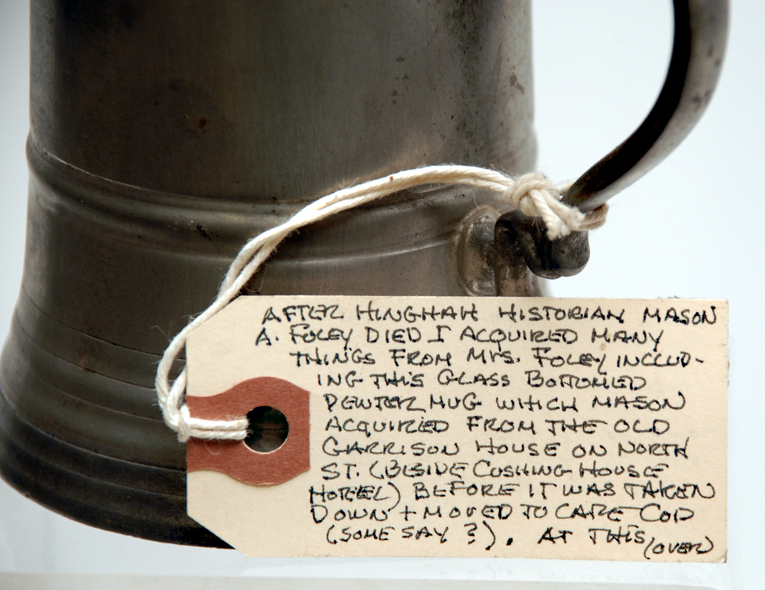 AFTER HINGHAM HISTORIAN MASON
A. FOLEY DIED I ACQUIRED MANY
THINGS FROM MRS. FOLEY INCLUD-
ING THIS GLASS BOTTOMED
PEWTER MUG WHICH MASON
ACQUIRED FROM THE OLD
GARRISON HOUSE ON NORTH
ST. (BESIDE CUSHING HOUSE
HOTEL) BEFORE IT WAS TAKEN
DOWN + MOVED TO CAPE COD
(SOME SAY ?). AT THIS
(OVER)